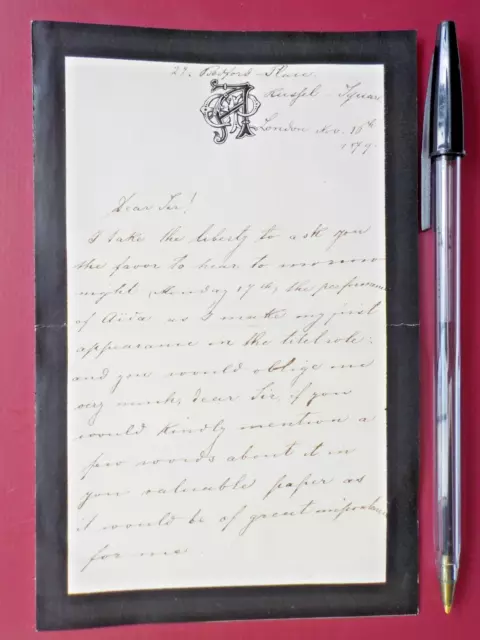 27. Bedford - Place.
Russel - Square
London Nov. 16th
1879.
Dear Sir!
I take the liberty to ask you
the favor to hear to morrow
night (Monday 17th) the performance
of Aida as I make my first
appearance in the titelrole:
and you would oblige me
very much, dear Sir, if you
would kindly mention a
few words about it in
you valuable paper as
it would be of great importance
for me.